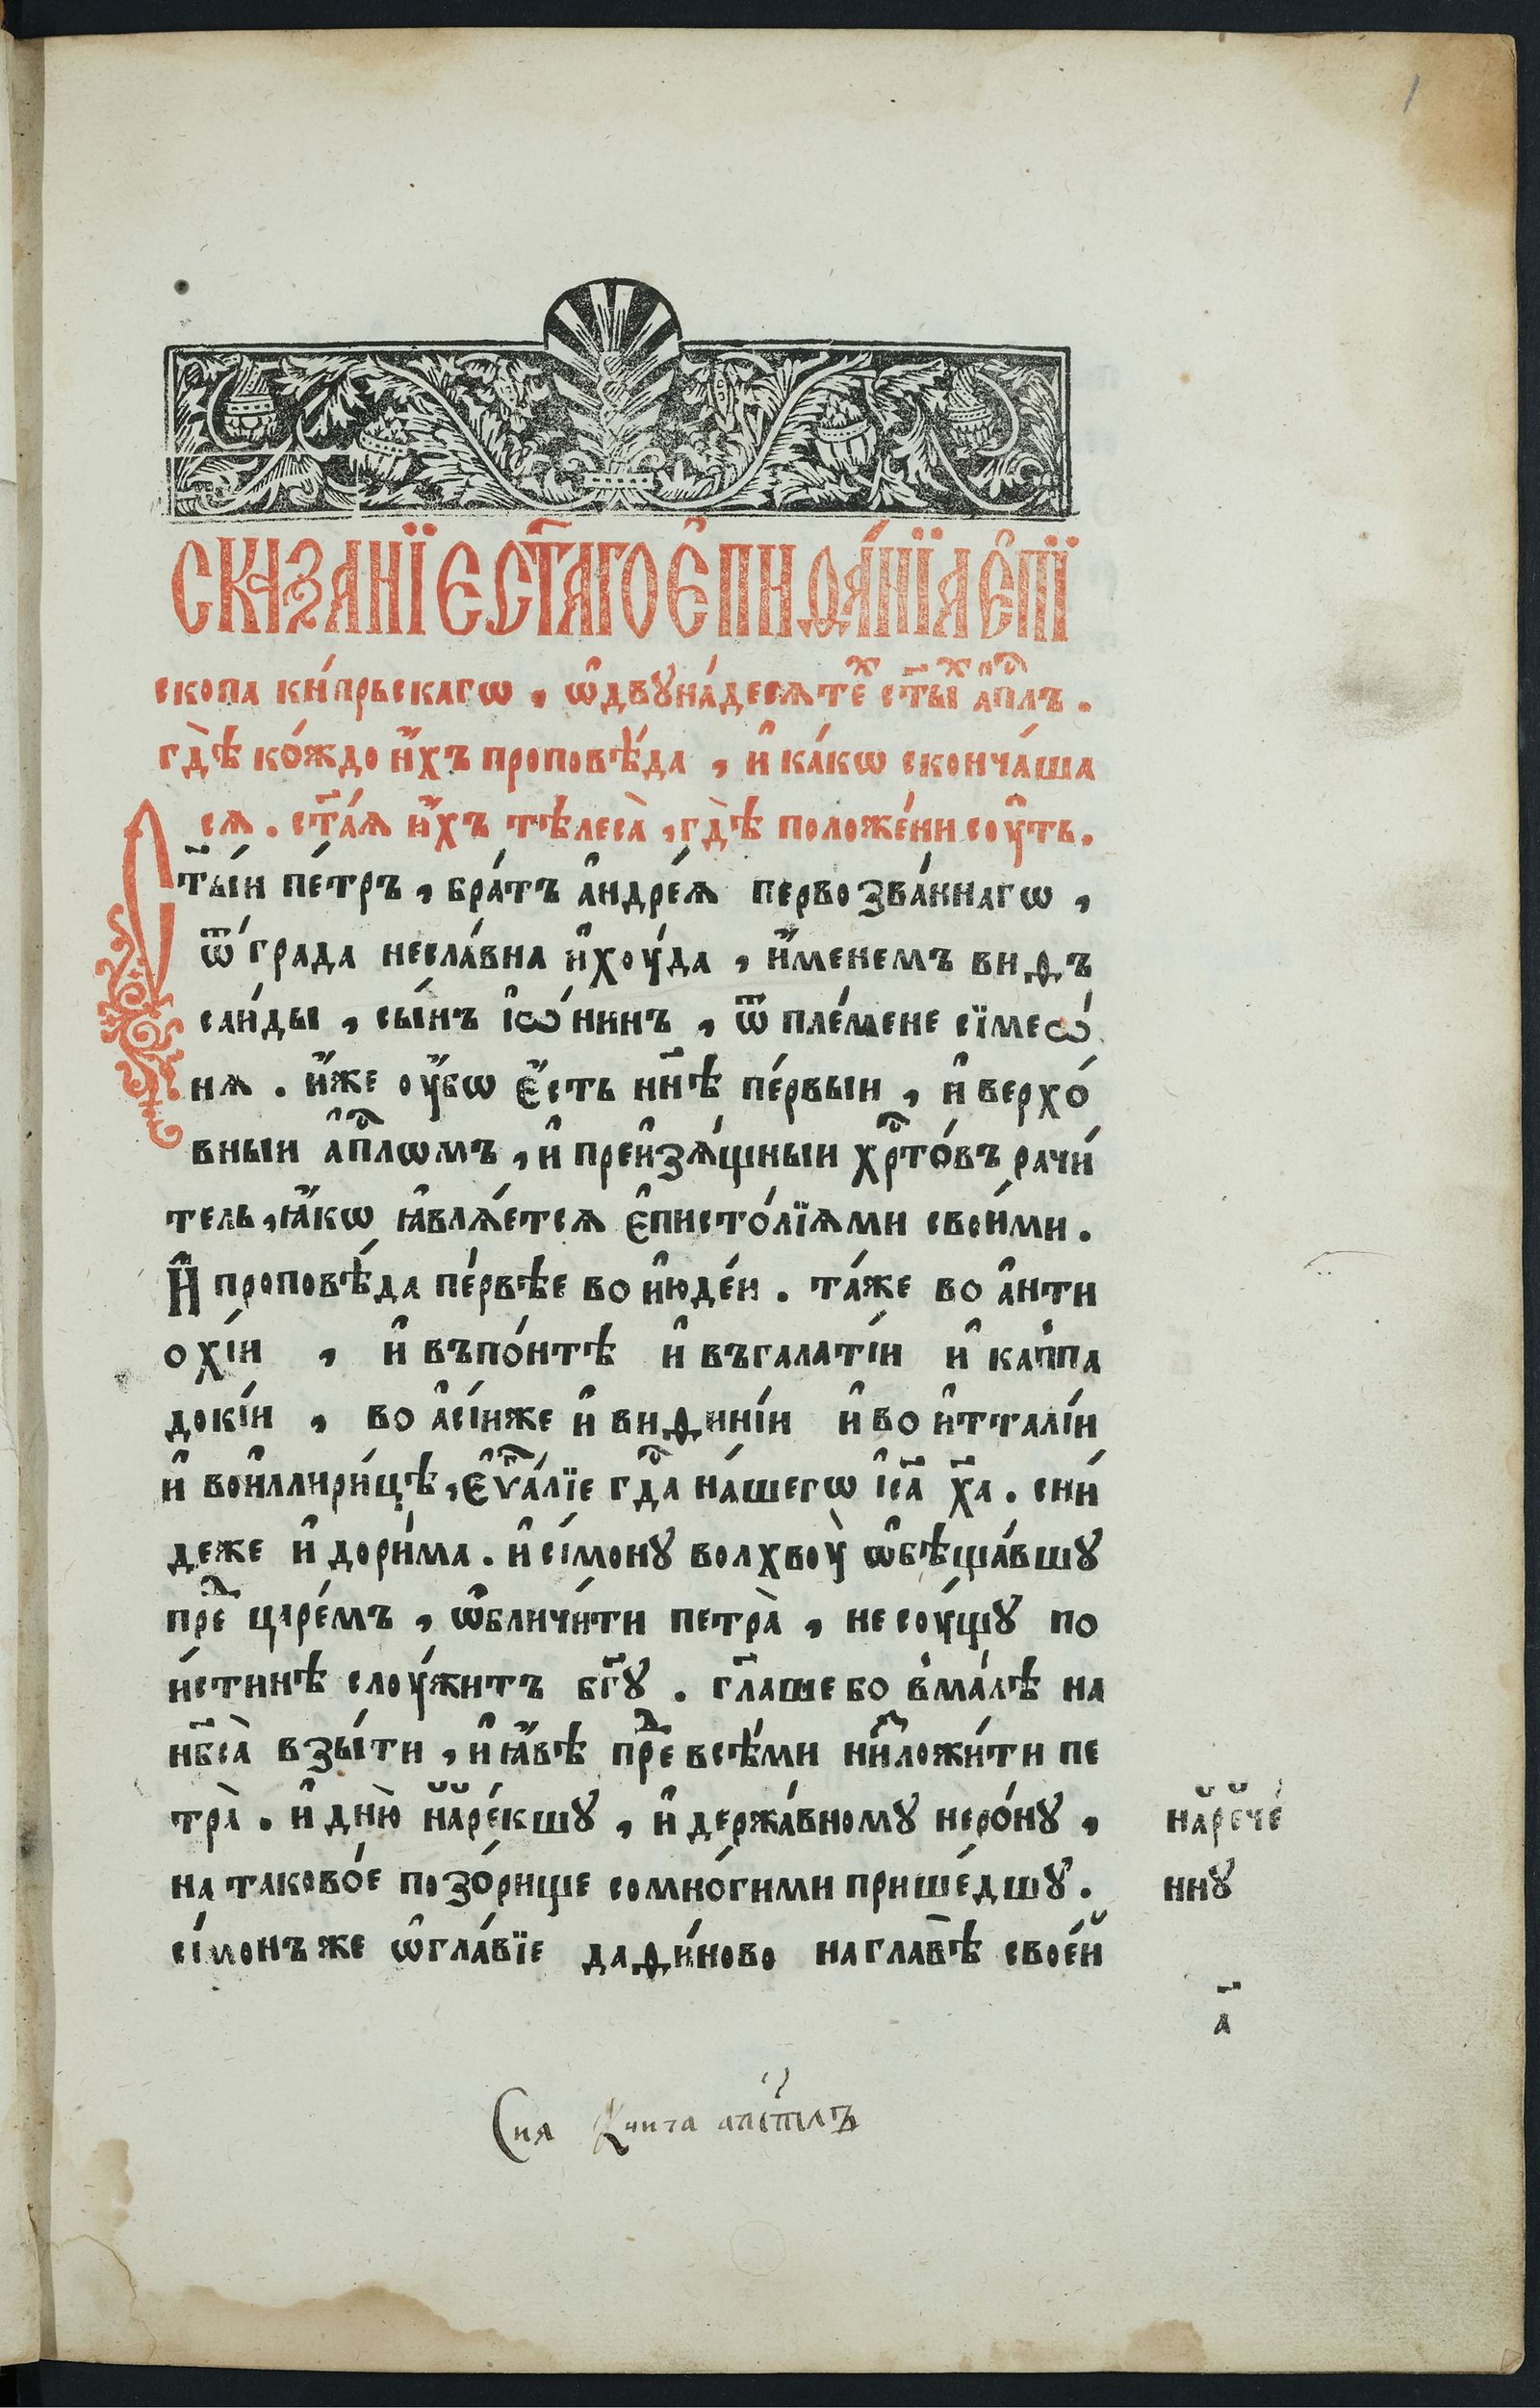 СКАЗАНЇЕ СТ҃АГО Е҆ПИФА́НЇА Е҆ПЇ
скопа ки́прьскагѡ , ѡ҆ двꙋна́десѧтеⷯ ст҃ыⷯ а҆пⷭ҇лъ .
гдѐѣ ко́ждо и҆́хъ проповѣ́да , и҆ ка́кѡ сконча́ша
сѧ . ст҃а́ѧ и҆́хъ тѣлеса̀ , гдѐѣ положе́ни соу҆ть .
Ст҃ы́и пе́тръ , бра́тъ а҆ндре́ѧ первозва́ннагѡ ,
ѿ гра́да несла́вна и҆хоу́да , и҆́менемъ виѳъ
саи́ды , сы́нъ і҆ѡ́нинъ , ѿ пле́мене сїмеѡ́
нѧ . и҆́же оу҆́бѡ є҆́сть нн҃ѣ пе́рвыи , и҆ верхо́
вныи а҆пⷭ҇лѡмъ , и҆ преи҆зѧ́щныи хрⷭ҇то́въ рачи́
тель , ꙗ҆́кѡ ꙗ҆влѧ́етсѧ є҆писто́лїѧми свои́ми .
И҆ проповѣ́да пе́рвѣе во и҆юде́и . та́же во а҆нти
охі́и , и҆ въпо́нтѣ и҆ въгалаті́и и҆ каппа
докі́и , во а҆сі́иже и҆ виѳині́и и҆ во и҆тталі́и
и҆ вои҆ллири́цѣ , є҆ѵⷢ҇а́лїе гдⷭ҇а на́шегѡ і҆са҃ ха҃ . сни́
деже и҆ дори́ма . и҆ сі́монꙋ волхвоу̀ ѡ҆бѣща́вшꙋ
преⷣ царе́мъ , ѡ҆бличи́ти петра̀ , не соу́щꙋ по
и́стинѣ слоу́житъ бг҃ꙋ . гл҃аше бо вма́лѣ на
нб҃са̀ взы́ти , и҆ ꙗ҆́вѣ преⷣ всѣ́ми ни҆ⷥложи́ти пе
тра̀ . и҆ дню̀ наре́кшꙋ , и҆ держа́вномꙋ неро́нꙋ ,
на таково́е позо́рище сомно́гими прише́дшꙋ .
сі́монъ же ѡ҆гла́вїе даѳи́ново на главѣ̀ свое́й
нарече́
ннꙋ
а҃
Сия Книга апстлъ
1